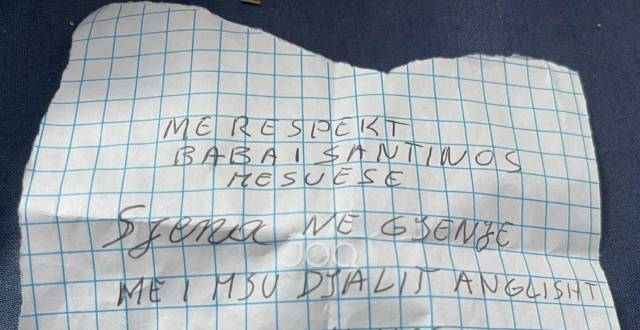 ME RESPEKT
BABA I SANTINOS
MESUESE
NE GJENJE
ME I MSU DJALIT ANGLISHT